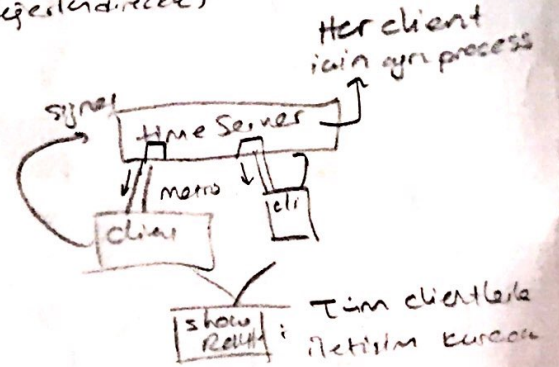 Her client
için ayrı process
signal
time Server
matrix
client
cli
show
Result : Tüm clientlerle
iletişim kuracak